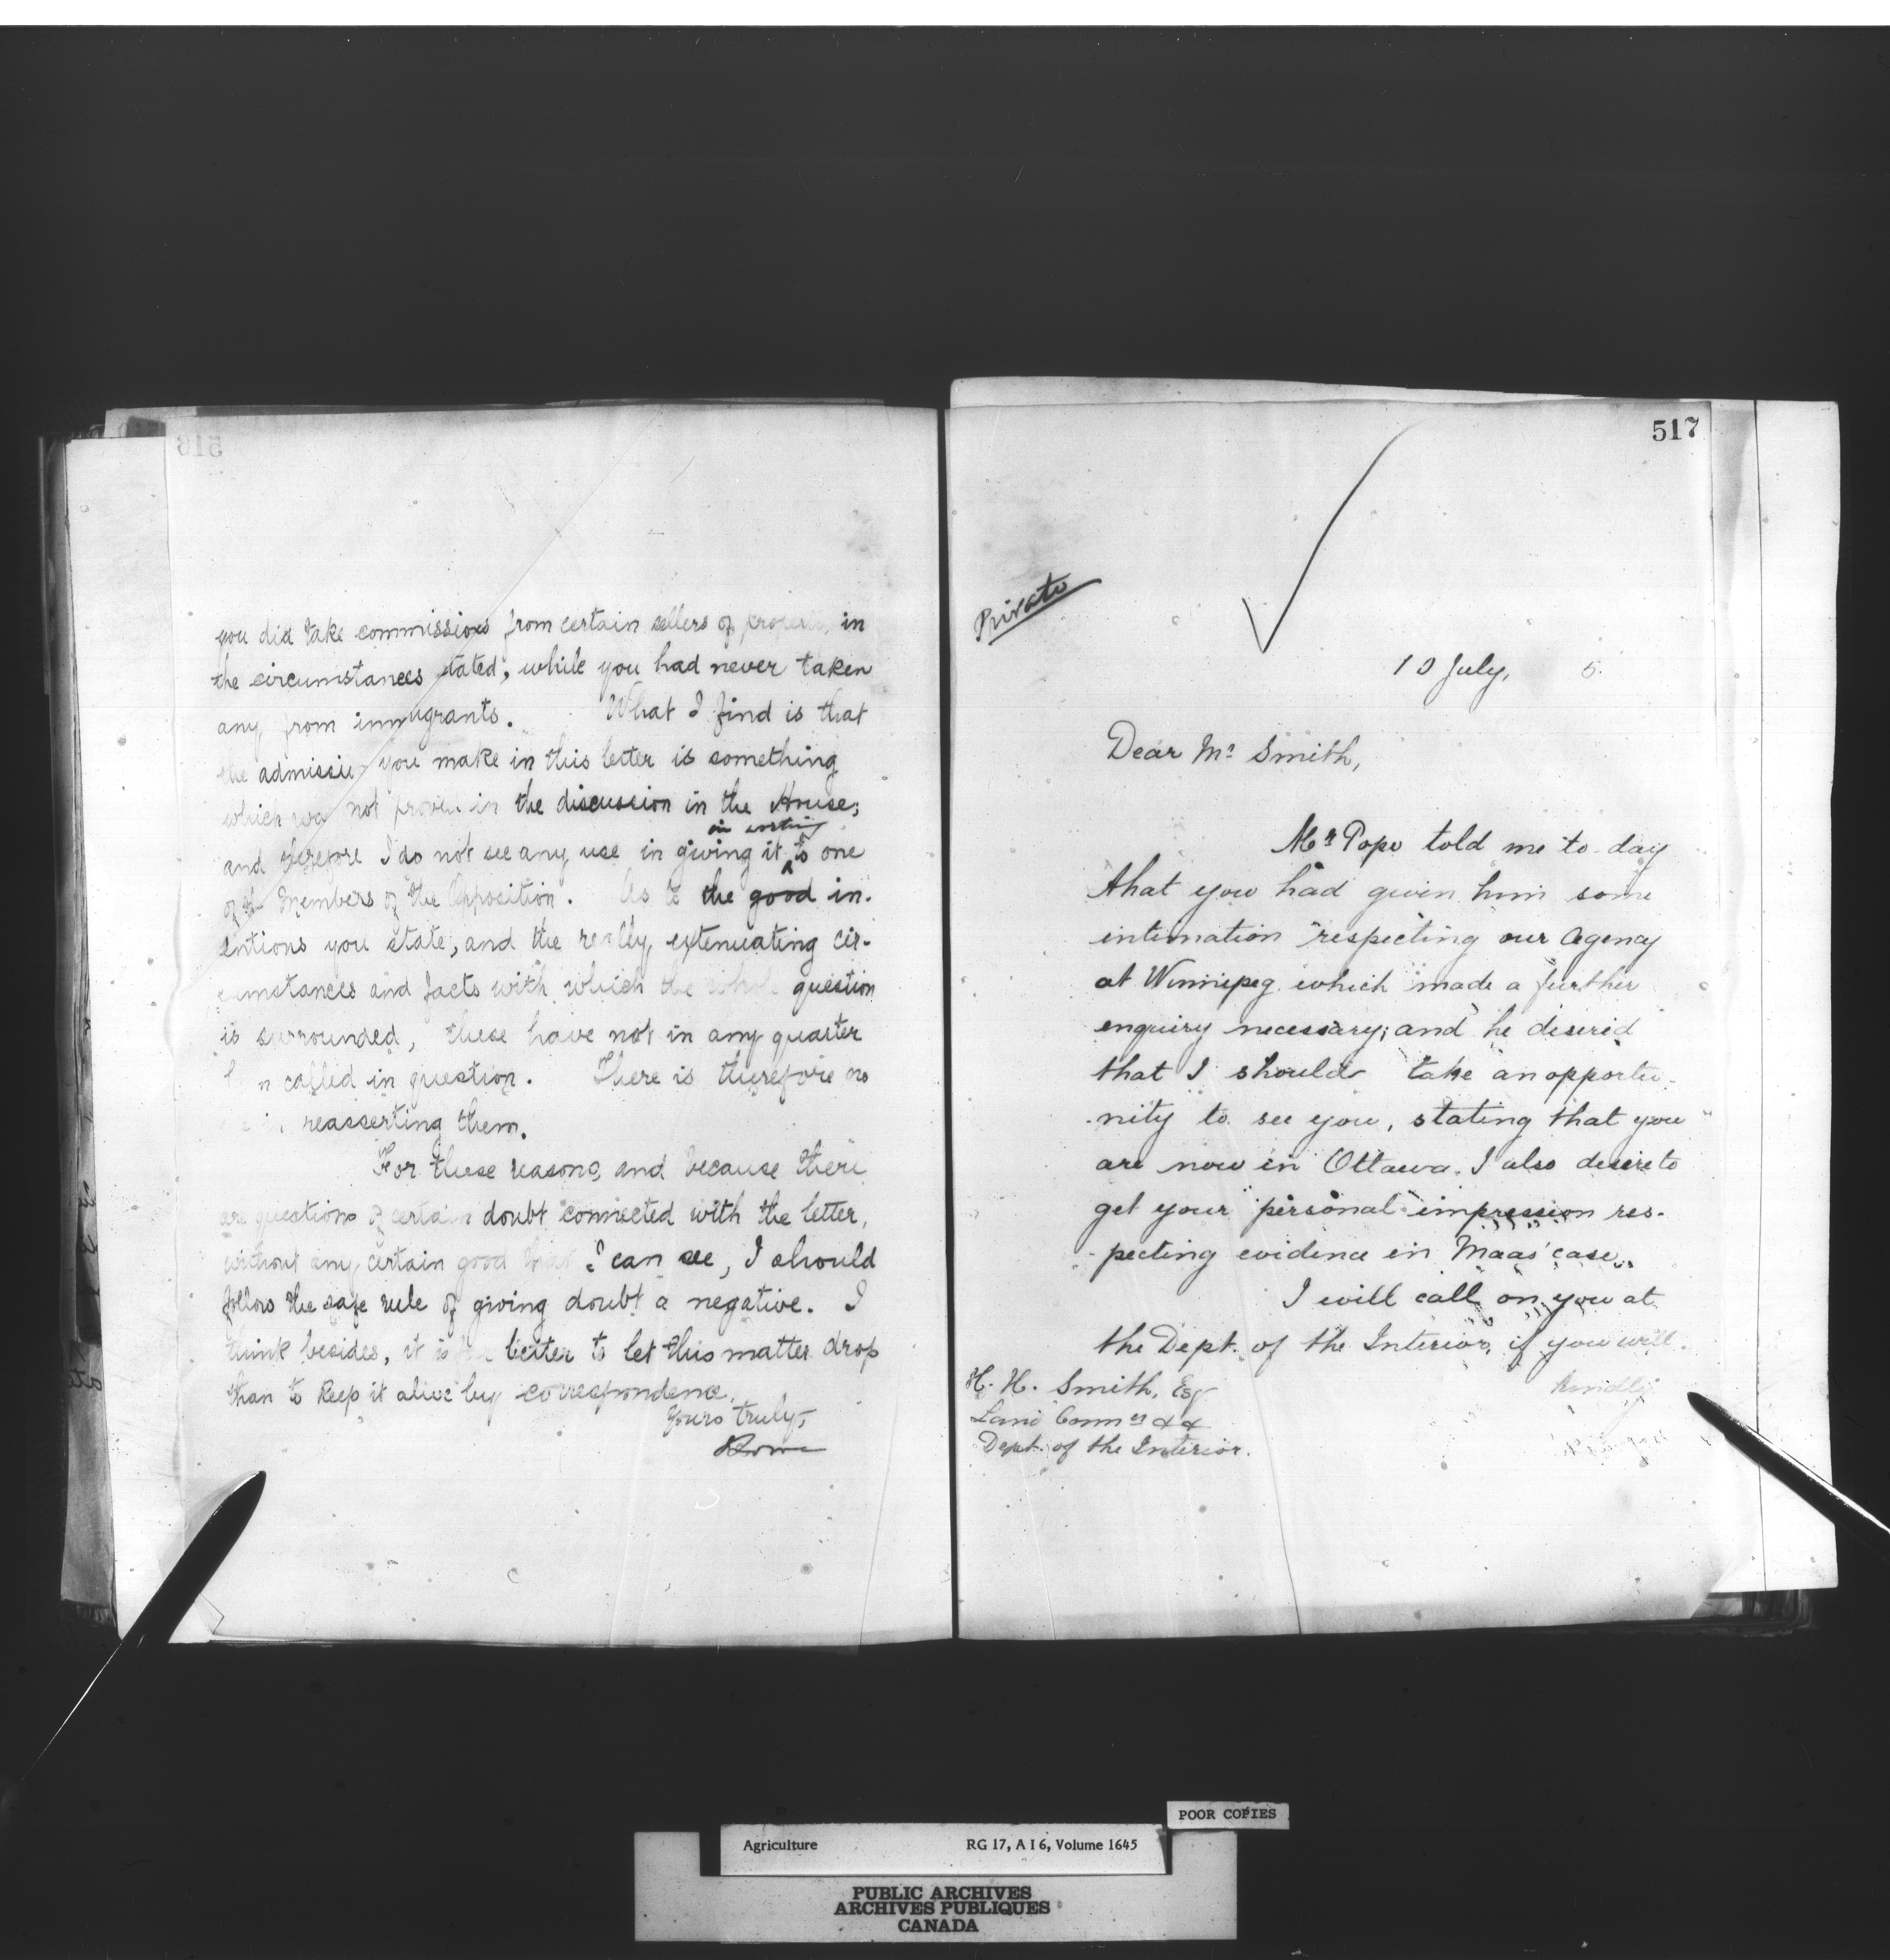 516
you did take commissions from certain sellers of property, in
the circumstances stated; while you had never taken
any from immigrants. What I find is that
the admission you make in this letter is something
which was not proven in the discussion in the House;
in writing
and therefore I do not see any use in giving it to one
of the Members of the Opposition. As to the good in-
tentions you state, and the really extenuating cir-
cumstances and facts with which the whole question
is surrounded, these have not in any quarter
called in question. There is therefore no
reasserting them.
For these reasons, and because there
are questions of certain doubt connected with the letter,
without any certain good that I can see, I should
follow the safe rule of giving doubt a negative. I
think besides, it is better to let this matter drop
than to keep it alive by correspondence.
Yours truly,
517
Private
10 July, 5.
Dear Mr Smith,
Mr Pope told me to-day
that you had given him some
intimation respecting our Agency
at Winnipeg which made a further
enquiry necessary; and he desired
that I should take an opportu-
-nity to see you, stating that you
are now in Ottawa. I also desire to
get your personal impression res-
-pecting evidence in Maas' case.
I will call on you at
the Dept. of the Interior, if you will
kindly
H. H. Smith, Esq
Land Commr &c
Dept. of the Interior.
POOR COPIES
Agriculture RG 17, A I 6, Volume 1645
PUBLIC ARCHIVES
ARCHIVES PUBLIQUES
CANADA